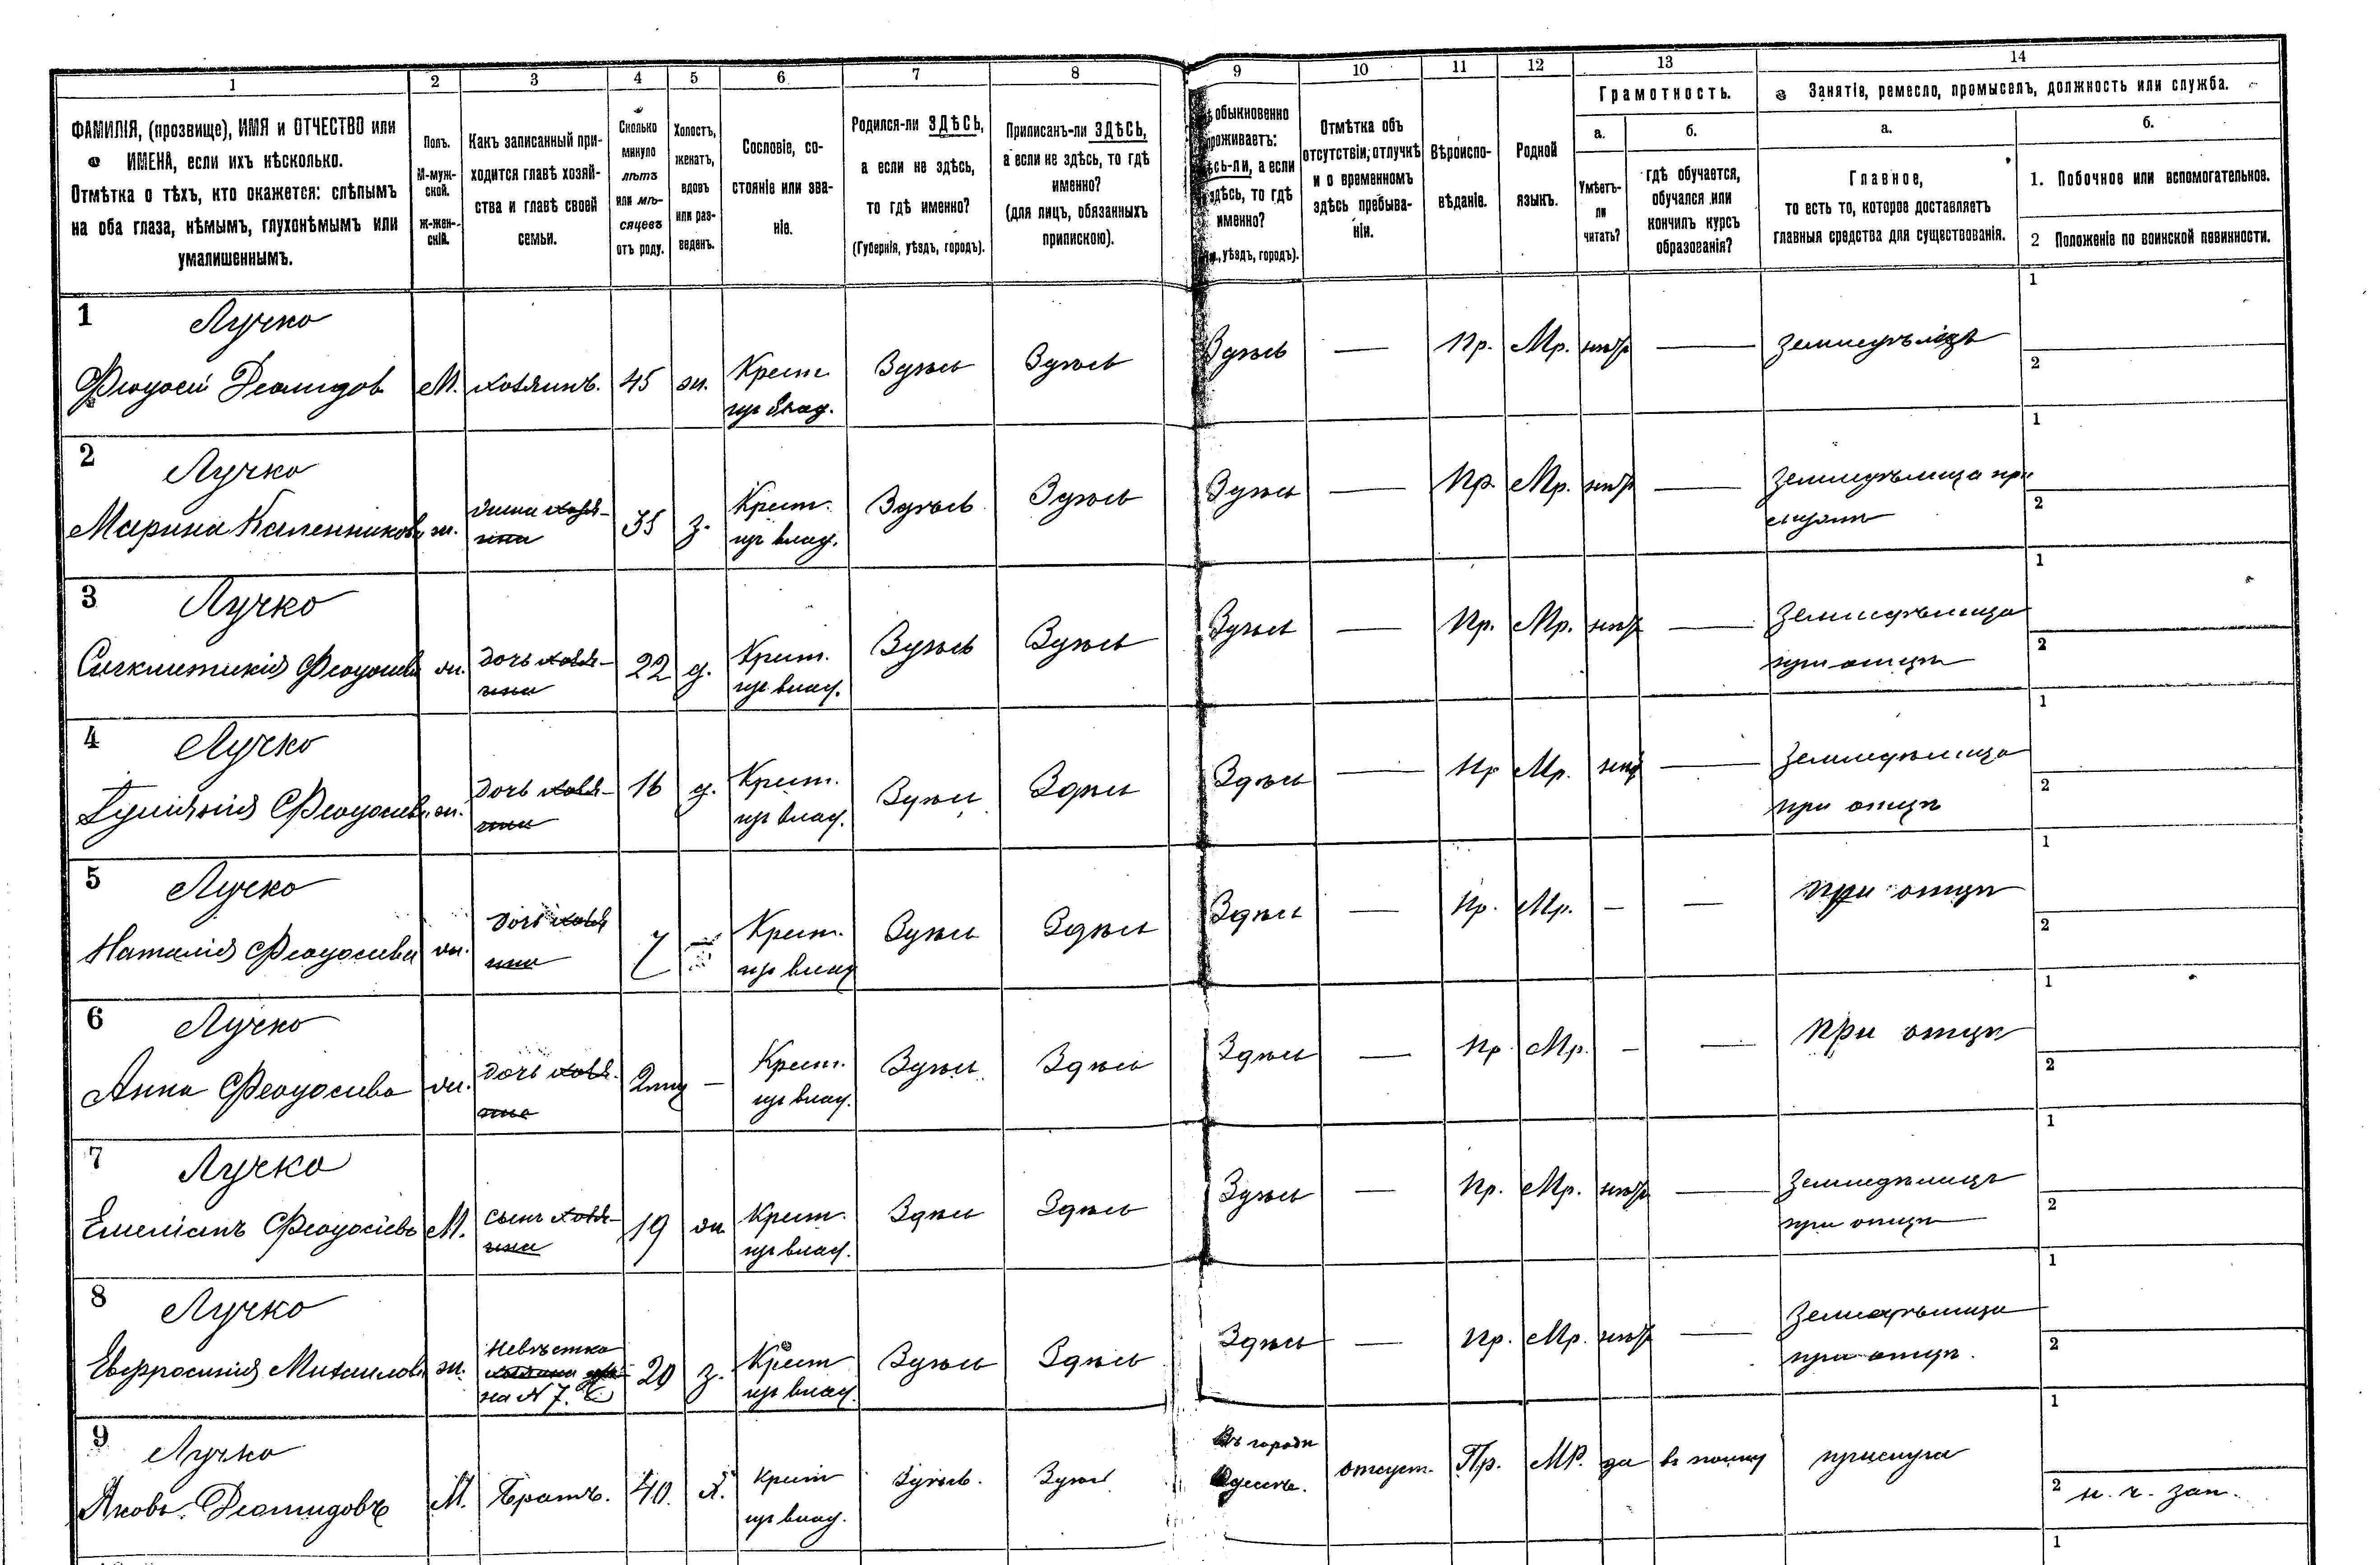 1 2 3 4 5 6 7 8 9 10 11 12 13 14
ФАМИЛІЯ, (прозвище), ИМЯ и ОТЧЕСТВО или
ИМЕНА, если ихъ нѣсколько.
Отмѣтка о тѣхъ, кто окажется: слѣпымъ
на оба глаза, нѣмымъ, глухонѣмымъ или
умалишеннымъ.
Полъ.
М-муж-
ской.
Ж-жен-
скій.
Какъ записанный при-
ходится главѣ хозяй-
ства и главѣ своей
семьи.
Сколько
минуло
лѣтъ
или мѣ-
сяцевъ
отъ роду.
Холостъ,
женатъ,
вдовъ
или раз-
веденъ.
Сословіе, со-
стояніе или зва-
ніе.
Родился-ли ЗДѢСЬ,
а если не здѣсь,
то гдѣ именно?
(Губернія, уѣздъ, городъ).
Приписанъ-ли ЗДѢСЬ,
а если не здѣсь, то гдѣ
именно?
(для лицъ, обязанныхъ
припискою).
обыкновенно
проживаетъ:
здѣсь-ли, а если
здѣсь, то гдѣ
именно?
уѣздъ, городъ).
Отмѣтка объ
отсутствіи, отлучкѣ
и о временномъ
здѣсь пребыва-
ніи.
Вѣроиспо-
вѣданіе.
Родной
языкъ.
Грамотность.
а.
Умѣетъ-
ли
читать?
б.
гдѣ обучается,
обучался или
кончилъ курсъ
образованія?
Занятіе, ремесло, промыселъ, должность или служба.
а.
Главное,
то есть то, которое доставляетъ
главныя средства для существованія.
б.
1. Побочное или вспомогательное.
2 Положеніе по воинской повинности.
1 Лучко
Феодосій Деомидов М. хозяинъ. 45 ж. Крест. Здѣсь Здѣсь Здѣсь — Пр. Мр. нѣтъ — земледѣлецъ
влад.
1
2
2 Лучко
Марина ж. жена хозя-
ина 35 з. Крест. Здѣсь Здѣсь Здѣсь — Пр. Мр. нѣтъ — земледѣлица при
влад.
1
2
3 Лучко
Синклитикія Феодосіева ж. дочь хозя-
ина 22 д. Крест. Здѣсь Здѣсь Здѣсь — Пр. Мр. нѣтъ — земледѣлица
влад. при отцѣ
1
2
4 Лучко
Феодосіева ж. дочь хозя-
ина 16 д. Крест. Здѣсь Здѣсь Здѣсь — Пр Мр. нѣтъ — земледѣлица
влад. при отцѣ
1
2
5 Лучко
Наталія Феодосіева ж. дочь хозя
ина 7 — Крест. Здѣсь Здѣсь Здѣсь — Пр. Мр. — — при отцѣ
влад
1
2
6 Лучко
Анна Феодосіева ж. дочь хозя-
ина — Крест. Здѣсь Здѣсь Здѣсь — Пр. Мр. — — при отцѣ
влад.
1
2
7 Лучко
Емеліанъ Феодосіевъ М. сынъ хозя-
ина 19 ж Крест. Здѣсь Здѣсь Здѣсь — Пр. Мр. нѣтъ — земледѣлецъ
влад. при отцѣ
1
2
8 Лучко
Евфросинія Михаилова ж. Невѣстка
хозяина
на N 7. 20 з. Крест Здѣсь Здѣсь Здѣсь — Пр. Мр. нѣтъ — земледѣлица
влад. при отцѣ.
1
2
9 Лучко
Яковъ Деомидовъ М. Братъ. 40. х. крест Здѣсь. Здѣсь Въ городѣ
Одессѣ. отсут. Пр. МР. да въ полку прислуга
влад.
1
2 н. ч. зап.
1